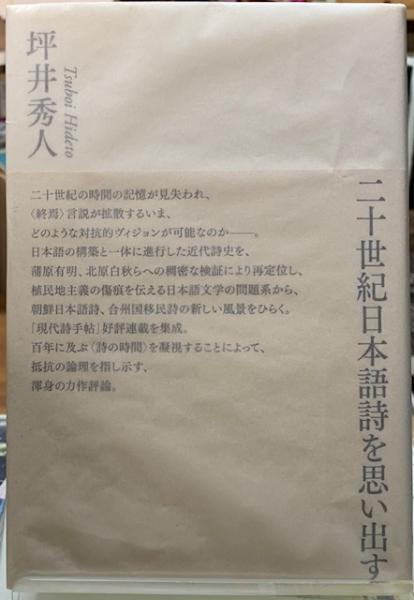 二十世紀日本語詩を思い出す
坪井秀人
Tsuboi Hideto
二十世紀の時間の記憶が見失われ、
〈終焉〉言説が拡散するいま、
どのような対抗的ヴィジョンが可能なのか——。
日本語の構築と一体に進行した近代詩史を、
蒲原有明、北原白秋らへの稠密な検証により再定位し、
植民地主義の傷痕を伝える日本語文学の問題系から、
朝鮮日本語詩、合州国移民詩の新しい風景をひらく。
「現代詩手帖」好評連載を集成。
百年に及ぶ〈詩の時間〉を凝視することによって、
抵抗の論理を指し示す、
渾身の力作評論。